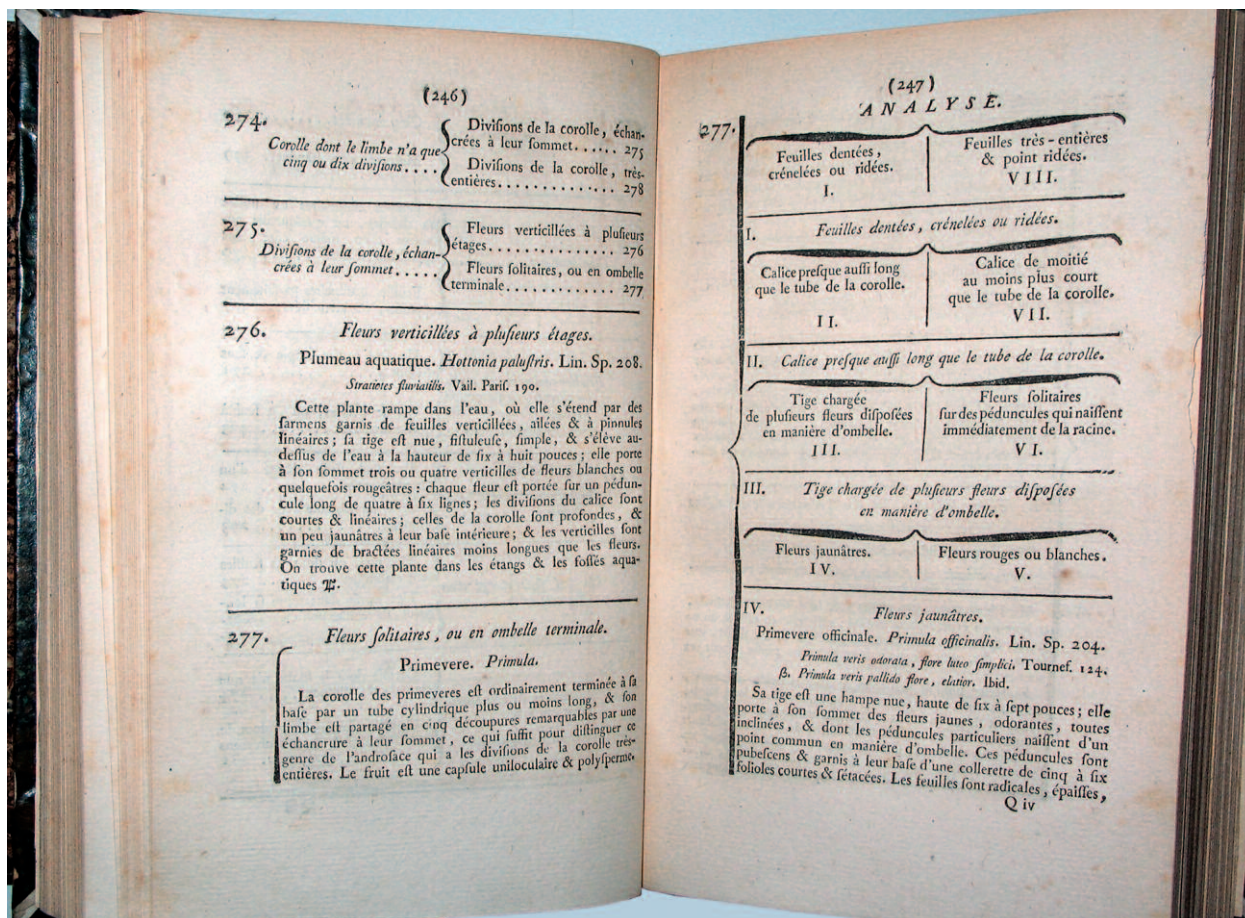 (246)
274.
Corolle dont le limbe n'a que
cinq ou dix diviſions....
Diviſions de la corolle, échan-
crées à leur ſommet...... 275
Diviſions de la corolle, très-
entières............. 278
275.
Diviſions de la corolle, échan-
crées à leur ſommet.....
Fleurs verticillées à pluſieurs
étages.............. 276
Fleurs ſolitaires, ou en ombelle
terminale............. 277
276. Fleurs verticillées à pluſieurs étages.
Plumeau aquatique. Hottonia paluſtris. Lin. Sp. 208.
Stratiotes fluviatilis. Vail. Pariſ. 190.
Cette plante rampe dans l'eau, où elle s'étend par des
ſarmens garnis de feuilles verticillées, ailées & à pinnules
linéaires; ſa tige eſt nue, fiſtuleuſe, ſimple, & s'élève au-
deſſus de l'eau à la hauteur de ſix à huit pouces; elle porte
à ſon ſommet trois ou quatre verticilles de fleurs blanches ou
quelquefois rougeâtres : chaque fleur eſt portée ſur un pédun-
cule long de quatre à ſix lignes; les diviſions du calice ſont
courtes & linéaires; celles de la corolle ſont profondes, &
un peu jaunâtres à leur baſe intérieure; & les verticilles ſont
garnies de bractées linéaires moins longues que les fleurs.
On trouve cette plante dans les étangs & les foſſés aqua-
tiques ♃.
277. Fleurs ſolitaires, ou en ombelle terminale.
Primevere. Primula.
La corolle des primeveres eſt ordinairement terminée à ſa
baſe par un tube cylindrique plus ou moins long, & ſon
limbe eſt partagé en cinq découpures remarquables par une
échancrure à leur ſommet, ce qui ſuffit pour diſtinguer ce
genre de l'androſace qui a les diviſions de la corolle très-
entières. Le fruit eſt une capſule uniloculaire & polyſperme.
(247)
ANALYSE.
277.
Feuilles dentées,
crénelées ou ridées.
I.
Feuilles très-entières
& point ridées.
VIII.
I. Feuilles dentées, crénelées ou ridées.
Calice preſque auſſi long
que le tube de la corolle.
II.
Calice de moitié
au moins plus court
que le tube de la corolle.
VII.
II. Calice preſque auſſi long que le tube de la corolle.
Tige chargée
de pluſieurs fleurs diſpoſées
en manière d'ombelle.
III.
Fleurs ſolitaires
ſur des péduncules qui naiſſent
immédiatement de la racine.
VI.
III. Tige chargée de pluſieurs fleurs diſpoſées
en manière d'ombelle.
Fleurs jaunâtres.
IV.
Fleurs rouges ou blanches.
V.
IV. Fleurs jaunâtres.
Primevere officinale. Primula officinalis. Lin. Sp. 204.
Primula veris odorata, flore luteo ſimplici. Tournef. 124.
β. Primula veris pallido flore, elatior. Ibid.
Sa tige eſt une hampe nue, haute de ſix à ſept pouces; elle
porte à ſon ſommet des fleurs jaunes, odorantes, toutes
inclinées, & dont les péduncules particuliers naiſſent d'un
point commun en manière d'ombelle. Ces péduncules ſont
pubeſcens & garnis à leur baſe d'une collerette de cinq à ſix
folioles courtes & ſétacées. Les feuilles ſont radicales, épaiſſes,
Q iv